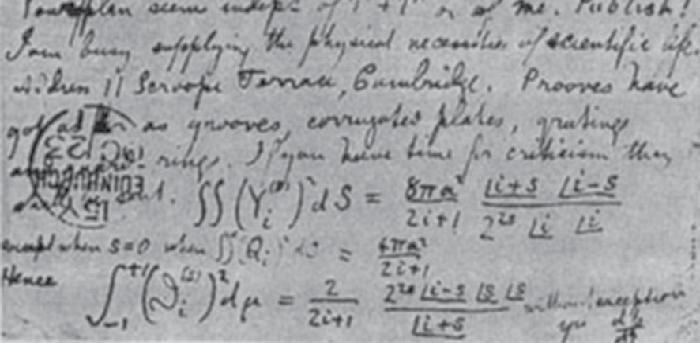 Your plan seems indept of V + V' or of me. Publish!
I am busy supplying the physical necessities of scientific life.
address 11 Scroope Terrace, Cambridge. Prooves have
got as far as grooves, corrugated plates, gratings
rings. If you have time for criticism they
out. ∬(Y_i^(s))² dS = 8πa²/(2i+1) · |i+s |i−s / (2^{2s} |i |i)
except when s=0 when ∬(Q_i)² dS = 4πa²/(2i+1)
Hence
∫_{−1}^{+1} (ϑ_i^(s))² dμ = 2/(2i+1) · 2^{2s} |i−s |s |s / |i+s without exception
EDINBURGH